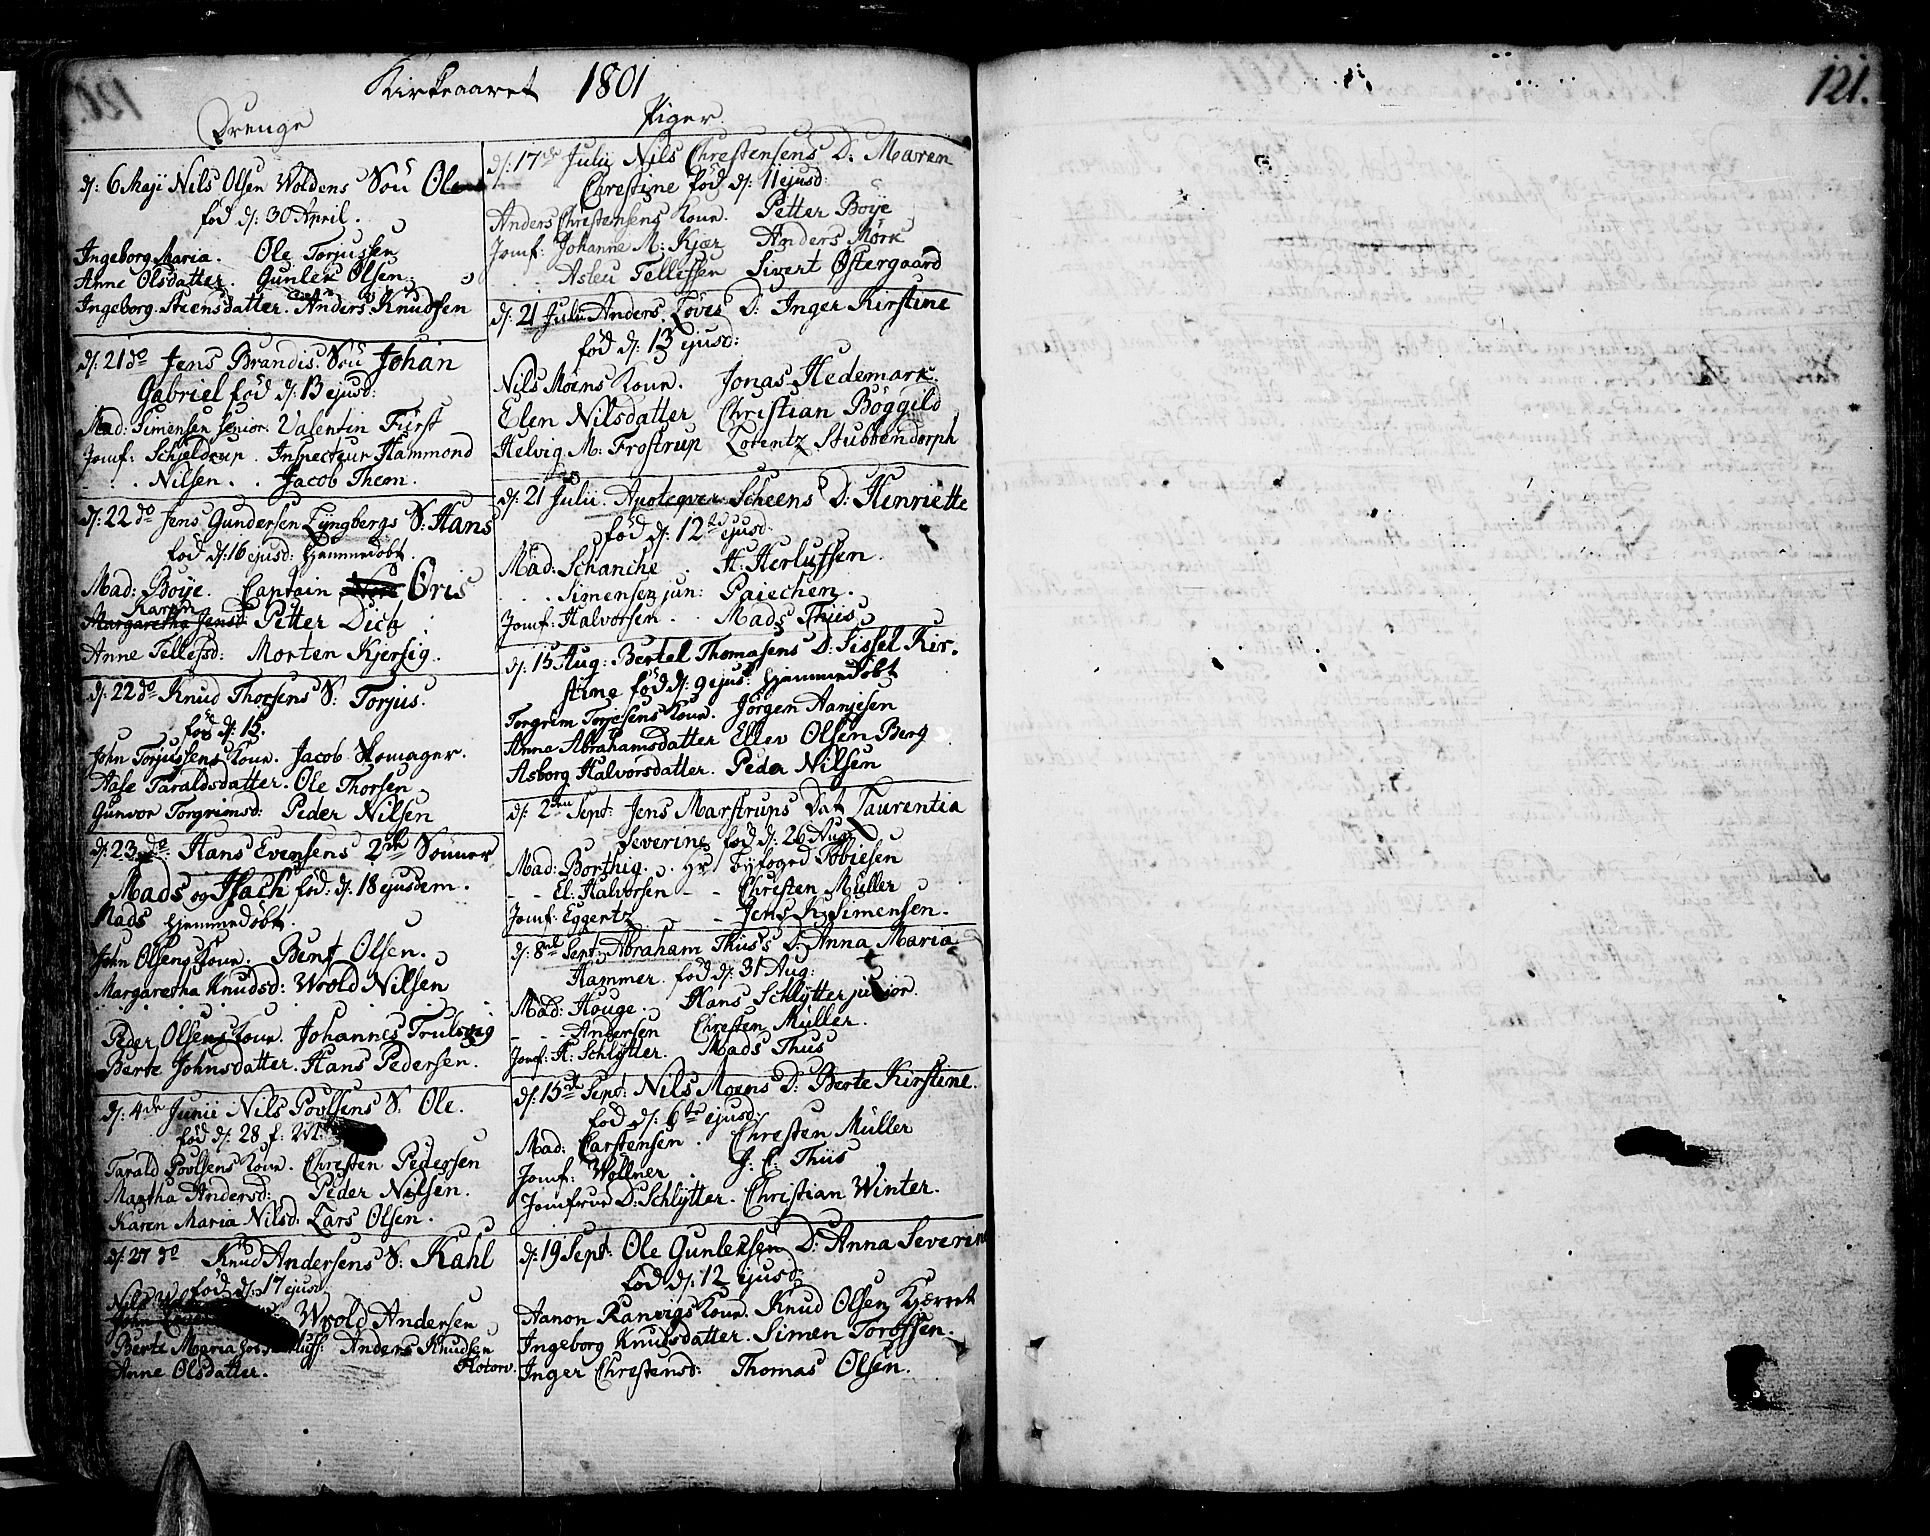 Kirkeaaret 1801
Drenge
d: 6 Maji Nils Olsen Woldens Sön Ole
fød d: 30 April.
Ingeborg Maria. Ole Torjussen
Anne Olsdatter. Gunlek Olsen.
Ingeborg Steensdatter. Anders Knudsen
d: 21 do Jens Brandis Sön Johan
Gabriel fød d: 13 ejusd:
Mad: Simensen senior. Valentin Fürst
Jomf: Schjeldrup. Inspecteur Hammond
. . Nilsen. . Jacob Thom.
d: 22 do Jens Gundersen Lyngbergs S: Hans
fød d: 16 ejusd: hjemmedøbt.
Mad: Boÿe. Captain Gris
Margaretha Jensd: Karen Petter Dich
Anne Tellefsd: Morten Kjersig.
d: 22 do Knud Thorsens S: Torjus.
fød d: 15.
John Torjussens Kone. Jacob Skomager.
Aase Taraldsdatter. Ole Thorsen
Gunvor Torgrimsd: Peder Nilsen
d: 23 do: Hans Evensens 2de Sönner
Mads og Isach fød: d: 18 ejusdem.
Mads hjemmedøbt.
John Olsens Kone. Bent Olsen.
Margaretha Knudsd: Wrold Nilsen
Peder Olsens Kone. Johannes Trulsvig
Berte Johnsdatter. Hans Pedersen.
d: 4de Junii Nils Povlsens S: Ole.
fød d: 28 f: M:
Tarald Povlsens Kone. Christen Pedersen
Martha Andersd: Peder Nilsen.
Karen Maria Nilsd. Lars Olsen.
d: 27 do Knud Andersens S: Kahl
fød d: 17 ejusd
Nils
John Wrold Andersen
Berte Maria Anders Knudsen
Anne Olsdatter. Flotorv.
Piger.
d: 17de Julii Nils Christensens D: Maren
Christine fød d: 11 ejusd:
Anders Christensens Kone. Petter Boÿe
Jomf: Johanne M: Kjær Anders Mørk
Asleu Tellefsen Sivert Østergaard
d: 21 Julii Anders Löves D: Inger Kirstine
fød d: 13 ejusd:
Nils Moens Kone. Jonas Hedemark.
Elen Nilsdatter Christian Böggild
Helvig M: Frostrup Lorentz Stubbendorph
d: 21 Julii. Apoteqver Scheens D: Henriette
fød d: 12te ejusd:
Mad: Schanche . H: Herlufsen.
. . Simensen jun: Paiechen.
Jomf: Halvorsen. . Mads Thiis
d: 15 Aug: Bertel Thomasens D: Sissel Kir-
stine fød d: 9 ejus: hjemmedøbt
Torgrim Torjesens Kone. Jörgen Aanjesen
Anna Abrahamsdatter Ellev Olsen Berg
Asborg Halvorsdatter. Peder Nilsen
d: 2den Sept: Jens Marstrups Dat Laurentia
Severine fød d: 26 Aug
Mad: Borthig. . Hr Byfoged Tobiesen
- - El: Halvorsen - - Christen Müller
Jomf: Eggertz - - Jens K: Simensen.
d: 8de Sept: Abraham Thiis's D: Anna Maria
Hammer. fød d: 31 Aug:
Mad: Houge. Hans Schlÿtter junior.
- - Andersen Christen Müller.
Jomf: H: Schlÿtter. Mads Thiis
d: 15de Sept: Nils Moens D: Berte Kirstine.
fød d: 6te ejusd:
Mad: Carstensen. Christen Müller
Jomf: Wollner . J: C: Thiis
Jomfrue D: Schlÿtter. Christian Winter.
d: 19 Sept: Ole Gunleksen D: Anna Severin
fød d: 12 ejusd:
Aanon Ranvigs Kone. Knud Olsen Kjærret
Ingeborg Knudsdatter. Simen Torossen.
Inger Christensd: Thomas Olsen.
121.